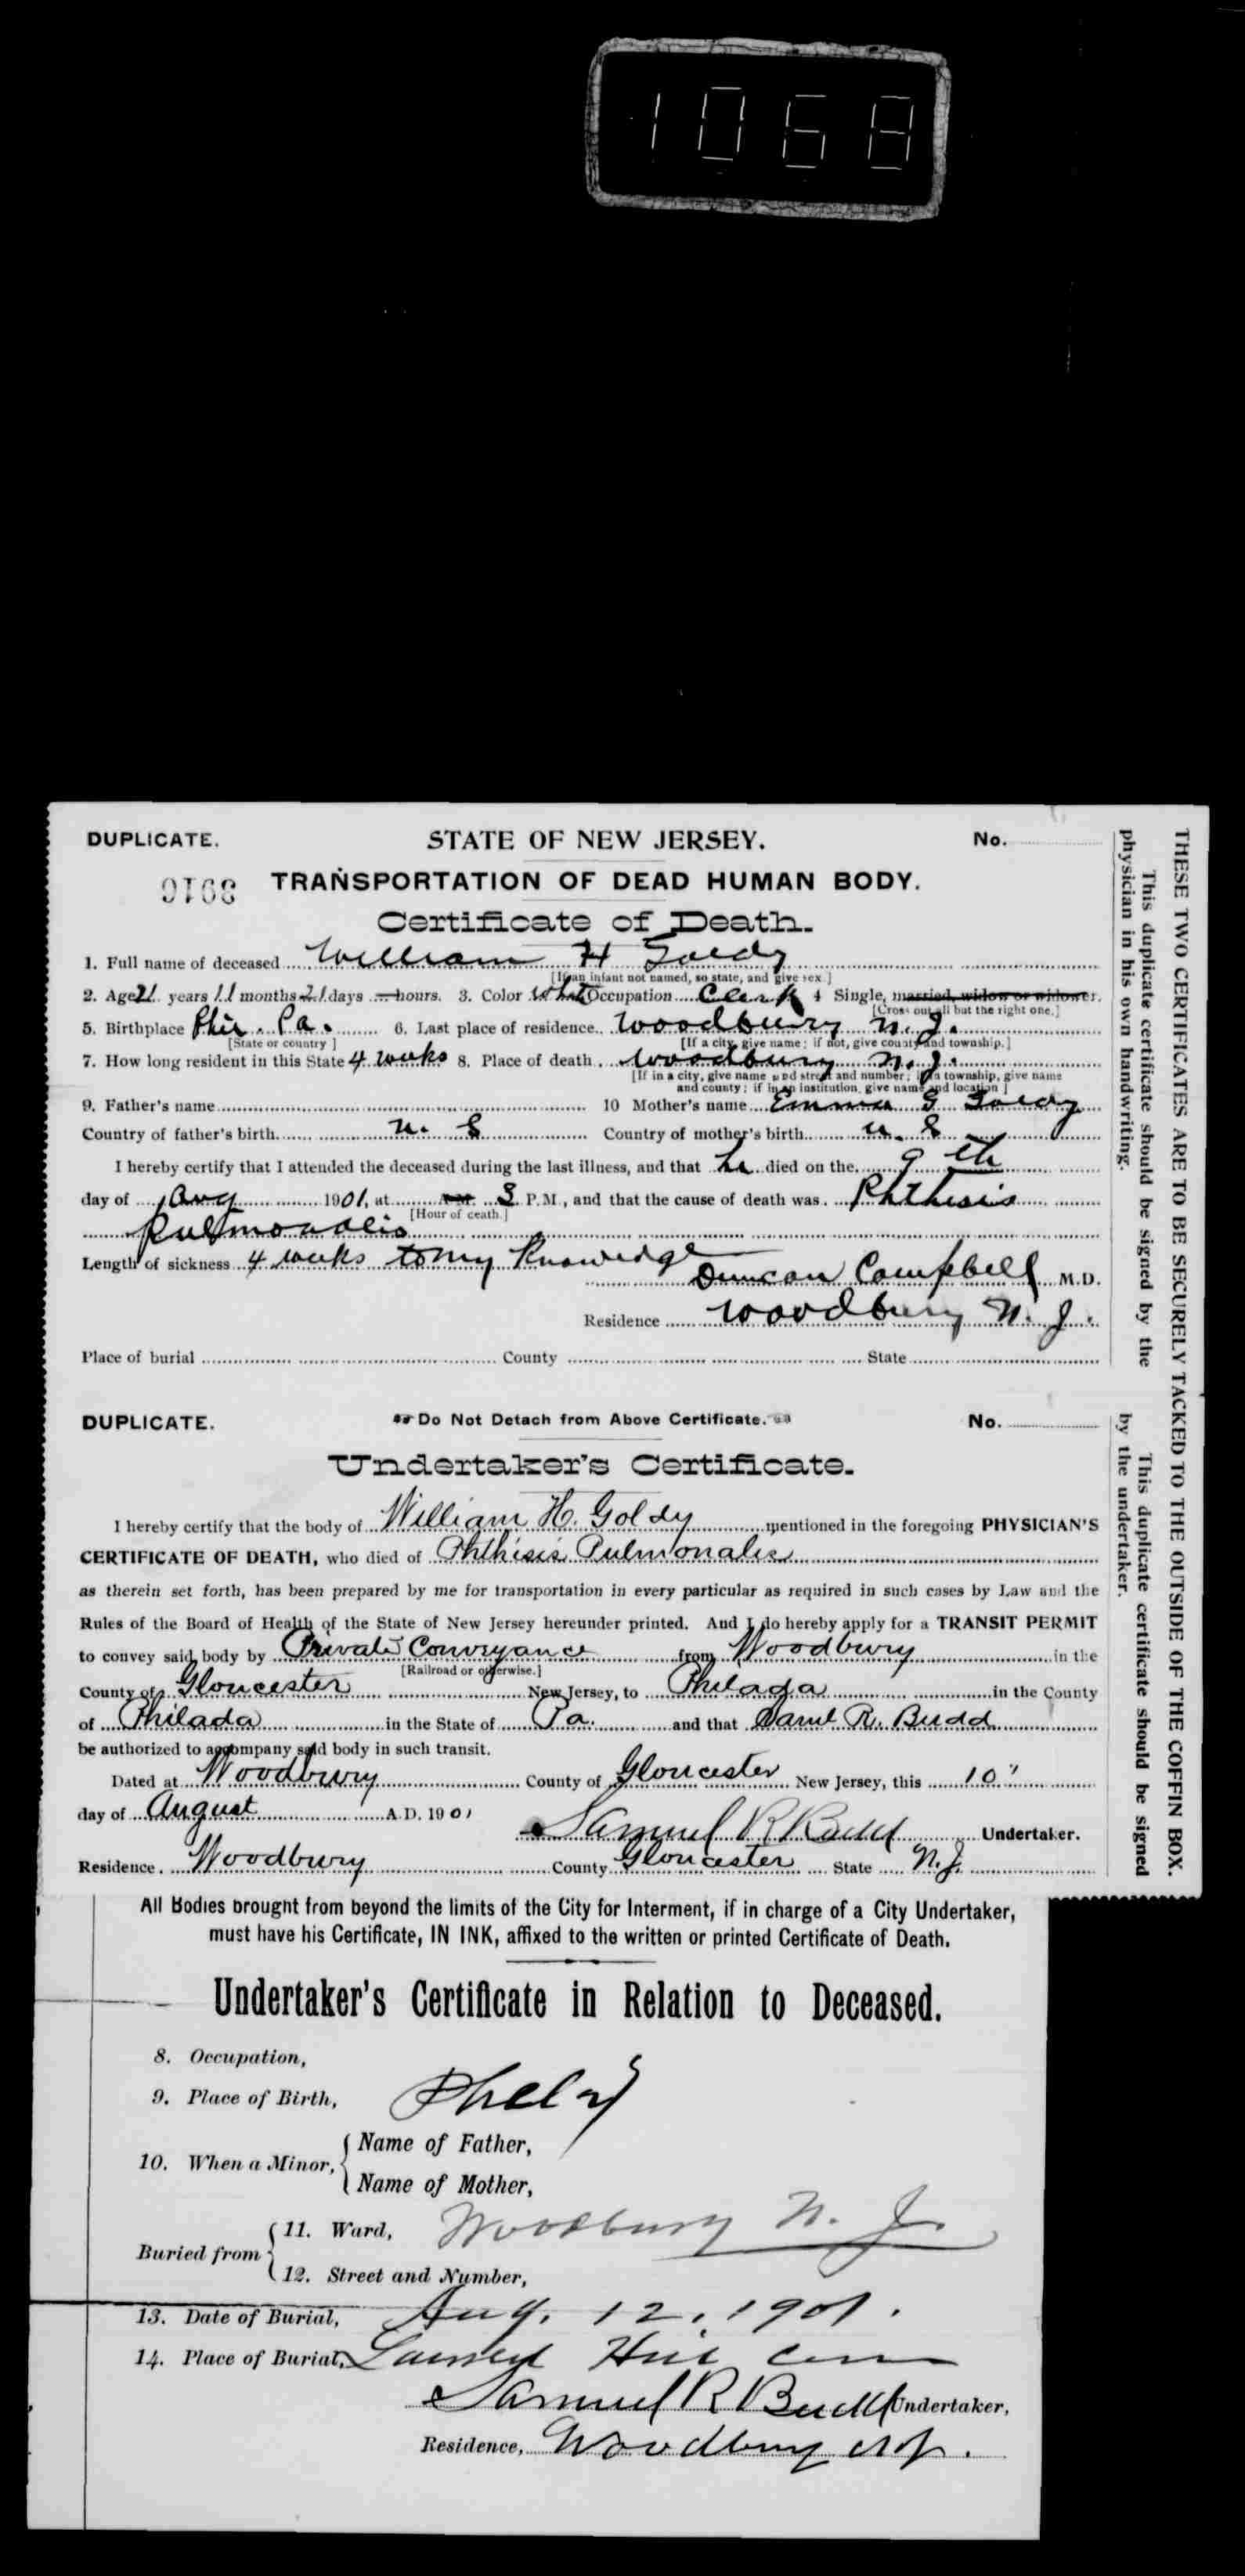 1068
DUPLICATE. STATE OF NEW JERSEY. No.
TRANSPORTATION OF DEAD HUMAN BODY.
Certificate of Death.
1. Full name of deceased William H Goldy
[If an infant not named, so state, and give sex.]
2. Age 21 years 11 months 21 days — hours. 3. Color White Occupation Clerk 4 Single, married, widow or widower.
[Cross out all but the right one.]
5. Birthplace Phil. Pa. 6. Last place of residence Woodbury N. J.
[State or country] [If a city, give name; if not, give county and township.]
7. How long resident in this State 4 weeks 8. Place of death Woodbury N. J.
[If in a city, give name and street and number; if a township, give name
and county; if in an institution, give name and location]
9. Father's name 10 Mother's name Emma G Goldy
Country of father's birth U. S Country of mother's birth U. S
I hereby certify that I attended the deceased during the last illness, and that he died on the 9th
day of Aug 1901, at A.M. 3 P.M., and that the cause of death was Phthisis
[Hour of death.]
Pulmonalis
Length of sickness 4 weeks to my Knowledge
Duncan Campbell M.D.
Residence Woodbury N. J.
Place of burial County State
DUPLICATE. Do Not Detach from Above Certificate. No.
Undertaker's Certificate.
I hereby certify that the body of William H. Goldy mentioned in the foregoing PHYSICIAN'S
CERTIFICATE OF DEATH, who died of Phthisis Pulmonalis
as therein set forth, has been prepared by me for transportation in every particular as required in such cases by Law and the
Rules of the Board of Health of the State of New Jersey hereunder printed. And I do hereby apply for a TRANSIT PERMIT
to convey said body by Private Conveyance from Woodbury in the
[Railroad or otherwise.]
County of Gloucester New Jersey, to Philada in the County
of Philada in the State of Pa. and that Saml R. Budd
be authorized to accompany said body in such transit.
Dated at Woodbury County of Gloucester New Jersey, this 10"
day of August A.D. 1901
Samuel R Budd Undertaker.
Residence. Woodbury County Gloucester State N.J.
THESE TWO CERTIFICATES ARE TO BE SECURELY TACKED TO THE OUTSIDE OF THE COFFIN BOX.
This duplicate certificate should be signed by the
physician in his own handwriting.
This duplicate certificate should be signed
by the undertaker.
All Bodies brought from beyond the limits of the City for Interment, if in charge of a City Undertaker,
must have his Certificate, IN INK, affixed to the written or printed Certificate of Death.
Undertaker's Certificate in Relation to Deceased.
8. Occupation,
9. Place of Birth,
10. When a Minor, { Name of Father,
Name of Mother,
Buried from { 11. Ward, Woodbury N. J.
12. Street and Number,
13. Date of Burial, Aug. 12, 1901.
14. Place of Burial, Laurel Hill Cem
Samuel R Budd Undertaker,
Residence, Woodbury N J.